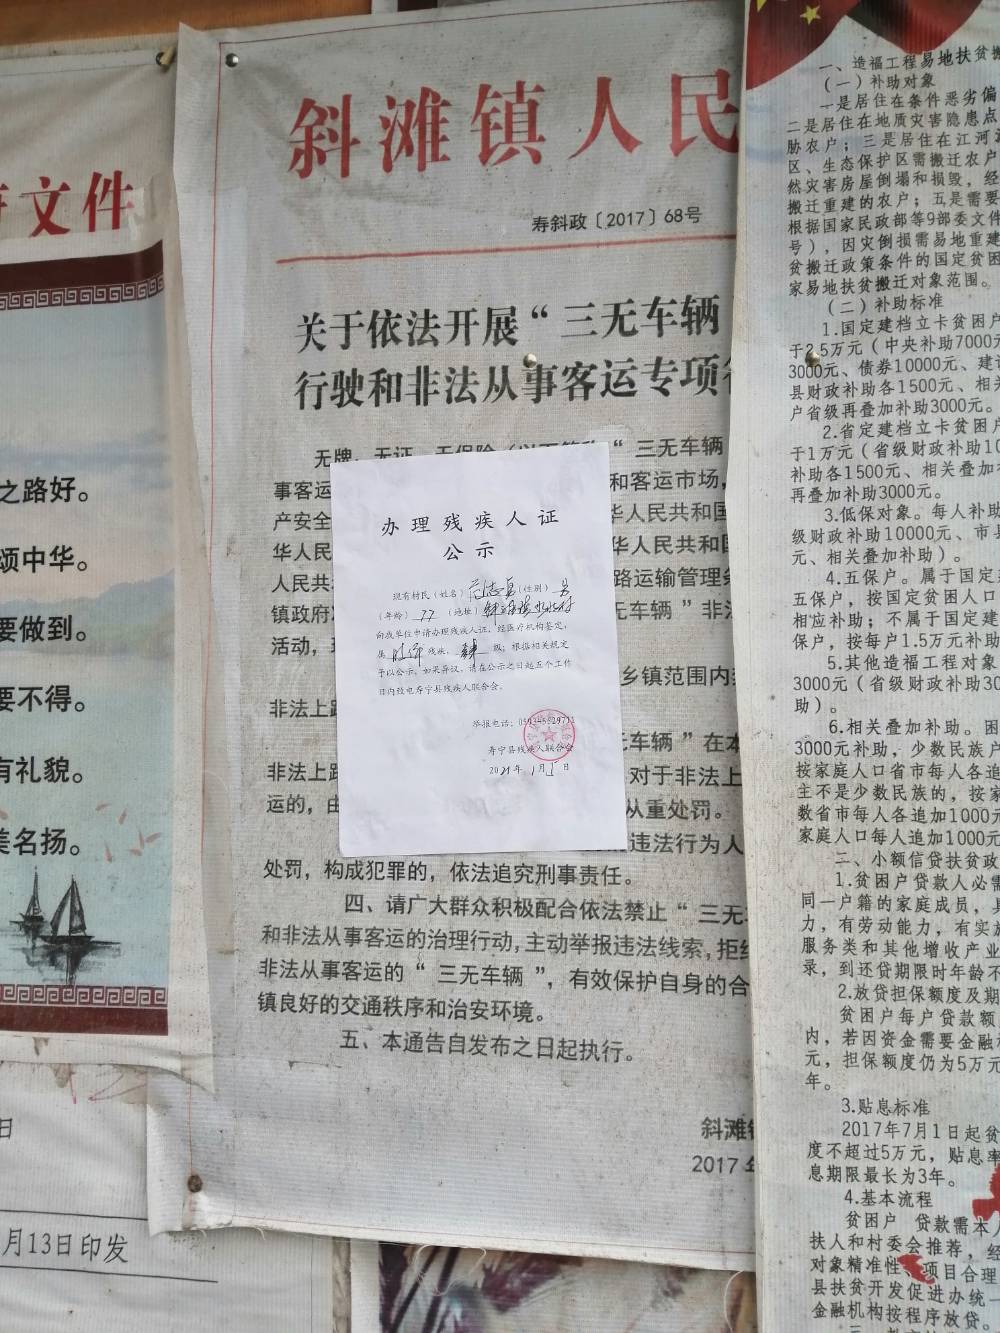 文件
之路好。
颂中华。
要做到。
要不得。
有礼貌。
美名扬。
日
月13日印发
斜滩镇人民
寿斜政〔2017〕68号
关于依法开展“三无车辆
行驶和非法从事客运专项
“三无车辆
事客运
和客运市场，
产安全
华人民共和国
华人民
华人民共和国
人民共
路运输管理条
镇政府
无车辆”非法
活动，
乡镇范围内
非法上路
无车辆”在本
非法上路
对于非法上
运的，由
从重处罚。
违法行为人
处罚，构成犯罪的，依法追究刑事责任。
四、请广大群众积极配合依法禁止“三无
和非法从事客运的治理行动，主动举报违法线索，拒
非法从事客运的“三无车辆”，有效保护自身的合
镇良好的交通秩序和治安环境。
五、本通告自发布之日起执行。
斜滩
2017年
办理残疾人证
公示
现有村民（姓名）（性别）男
（年龄）77（地址）斜滩镇
向我单位申请办理残疾人证，经医疗机构鉴定，
属肢体残疾，级；根据相关规定
予以公示，如果异议，请在公示之日起五个工作
日内致电寿宁县残疾人联合会。
举报电话：
寿宁县残疾人联合会
2021年1月5日
一、造福工程易地扶贫搬
（一）补助对象
一是居住在条件恶劣偏
二是居住在地质灾害隐患点
胁农户；三是居住在江河
区、生态保护区需搬迁农户
然灾害房屋倒塌和损毁，经
搬迁重建的农户；五是需要
根据国家民政部等9部委文件
号），因灾倒损需易地重建
贫搬迁政策条件的国定贫困
家易地扶贫搬迁对象范围。
（二）补助标准
1.国定建档立卡贫困户
于2.5万元（中央补助7000元
3000元、债券10000元、建
县财政补助各1500元、相关
户省级再叠加补助3000元。
2.省定建档立卡贫困户
于1万元（省级财政补助10
补助各1500元、相关叠加
再叠加补助3000元。
3.低保对象。每人补助
级财政补助10000元、市县
元、相关叠加补助）。
4.五保户。属于国定
五保户，按国定贫困人口
相应补助；不属于国定建
保户，按每户1.5万元补助
5.其他造福工程对象
3000元（省级财政补助30
助）。
6.相关叠加补助。困
3000元补助，少数民族户
按家庭人口省市每人各追
主不是少数民族的，按家
数省市每人各追加1000元
家庭人口每人追加1000元
二、小额信贷扶贫政
1.贫困户贷款人必需
同一户籍的家庭成员，具
力，有劳动能力，有实施
服务类和其他增收产业
录，到还贷期限时年龄不
2.放贷担保额度及期
贫困户每户贷款额
内，若因资金需要金融
元，担保额度仍为5万元
年。
3.贴息标准
2017年7月1日起贫
度不超过5万元，贴息率
息期限最长为3年。
4.基本流程
贫困户 贷款需本人
扶人和村委会推荐，经
对象精准性、项目合理
县扶贫开发促进办统一
金融机构按程序放贷。